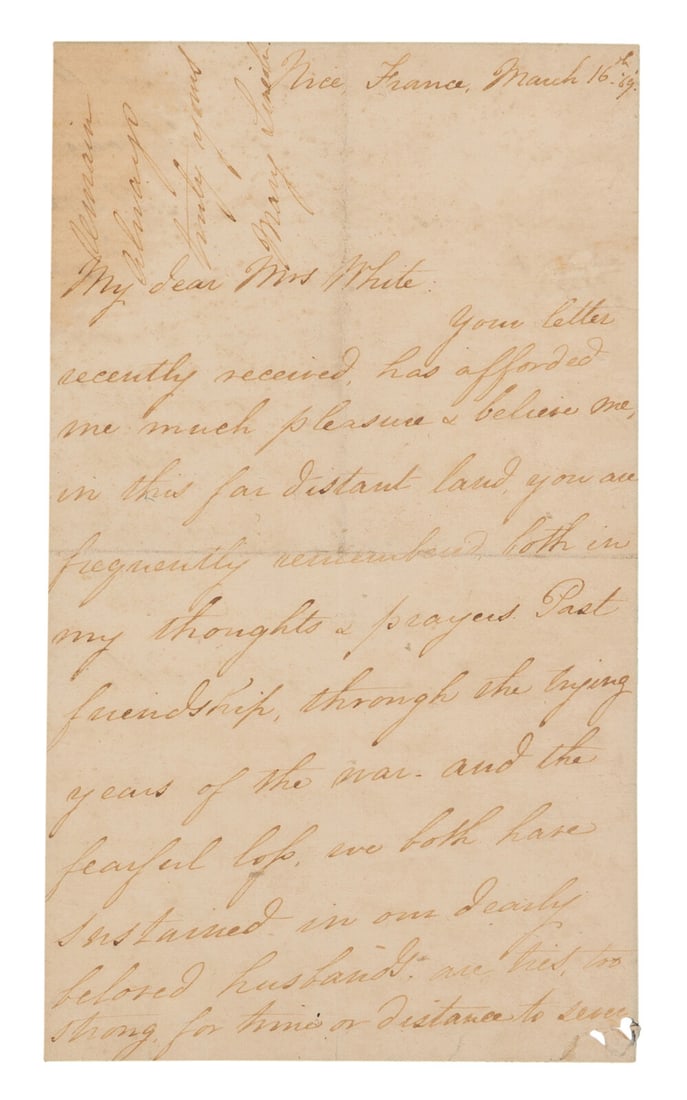 Nice, France, March 16th '69.
My dear Mrs White:
Your letter
recently received, has afforded
me much pleasure & believe me,
in this far distant land, you are
frequently remembered, both in
my thoughts & prayers. Past
friendship, through the trying
years of the war - and the
fearful loss, we both have
sustained in our dearly
beloved husbands - are ties, too
strong, for time or distance to sever
remain
always
truly yours
Mary Lincoln